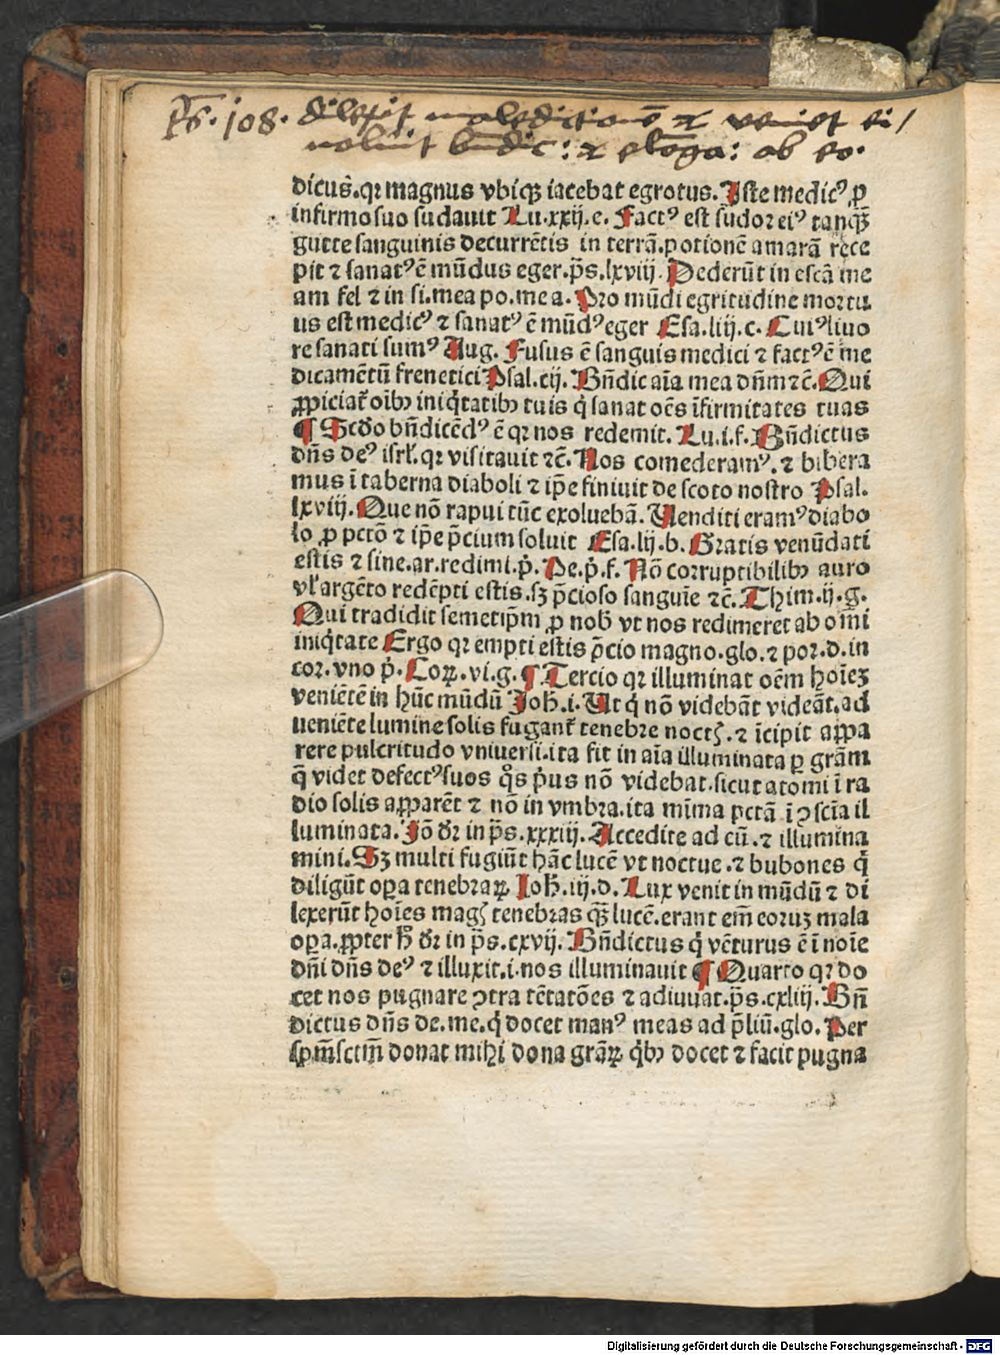 Ps. 108. dilexit maledictionē et veniet ei /
noluit bndic: et elōga: ab eo.
dicus̄.qꝛ magnus vbiqꝫ iacebat egrotus. Iste medicꝰ ꝓ
infirmo suo sudauit Lu.xxij.e. Factꝰ est sudor eiꝰ tanqꝫ̄
gutte sanguinis decurrētis in terrā.potionē amarā rece
pit ⁊ sanatꝰ ē mūdus eger.ps̄.lxviij. Dederūt in escā me
am fel ⁊ in si.mea po.me a. Pro mūdi egritudine mortu
us est medicꝰ ⁊ sanatꝰ ē mūdꝰ eger Esa.liij.c. Cuiꝰ liuo
re sanati sumꝰ Aug. Fusus ē sanguis medici ⁊ factꝰ ē me
dicamētū frenetici Psal.cij. Bn̄dic aīa mea dn̄m ⁊c̄. Qui
ꝓpiciat̄ oībꝫ iniq̇tatibꝫ tuis q̇ sanat oēs īfirmitates tuas
¶ Scd̄o bn̄dicēdꝰ ē qꝛ nos redemit. Lu.i.f. Bn̄dictus
dn̄s deꝰ isrl̄.qꝛ visitauit ⁊c̄. Nos comederamꝰ.⁊ bibera
mus ī taberna diaboli ⁊ ip̄e finiuit de scoto nostro Psal.
lxviij. Que nō rapui tūc exoluebā. Uenditi eramꝰ diabo
lo ꝓ pctō ⁊ ip̄e p̄cium soluit Esa.lij.b. Gratis venūdati
estis ⁊ sine.ar.redimi.ṗ. Pe.ṗ.f. Nō corruptibilibꝫ auro
vl̄ argēto redēpti estis.sꝫ p̄cioso sanguīe ⁊c̄. Thim.ij.g.
Qui tradidit semetip̄m ꝓ nob̄ vt nos redimeret ab om̄i
iniq̇tate Ergo qꝛ empti estis p̄cio magno.glo.⁊ por.d.in
cor.vno ṗ. Coꝝ.vi.g. ¶ Tercio qꝛ illuminat oēm hoīeꝫ
veniētē in hūc mūdū Joh̄.i. Ut q̇ nō videbāt videāt.ad
ueniēte lumine solis fugant̄ tenebre noctꝭ.⁊ īcipit aꝑpa
rere pulcritudo vniuersi.ita fit in aīa illuminata ꝑ grām
q̄ videt defectꝰ suos qo̊s ṗus nō videbat.sicut atomi ī ra
dio solis aꝑparēt ⁊ nō in vmbra.ita mīma pctā ī ꝯsciā il
luminata. Jō dr̄ in ps̄.xxxiij. Accedite ad eū.⁊ illumina
mini. Sꝫ multi fugiūt hāc lucē vt noctue.⁊ bubones q̇
diligūt oꝑa tenebraꝝ Joh̄.iij.d. Lux venit in mūdū ⁊ di
lexerūt hoīes magꝭ tenebras qꝫ̄ lucē.erant em̄ eoruꝫ mala
oꝑa.ꝓpter h̄ dr̄ in ps̄.cxvij. Bn̄dictus q̇ vēturus ē ī noīe
dn̄i dn̄s deꝰ ⁊ illuxit.i.nos illuminauit ¶ Quarto qꝛ do
cet nos pugnare ꝯtra tētatōes ⁊ adiuuat.ps̄.cxliij. Bn̄
dictus dn̄s de.me.q̇ docet manꝰ meas ad p̄liū.glo. Per
sp̄m̄sctm̄ donat mihi dona grāꝝ q̇bꝫ docet ⁊ facit pugna
Digitalisierung gefördert durch die Deutsche Forschungsgemeinschaft - DFG